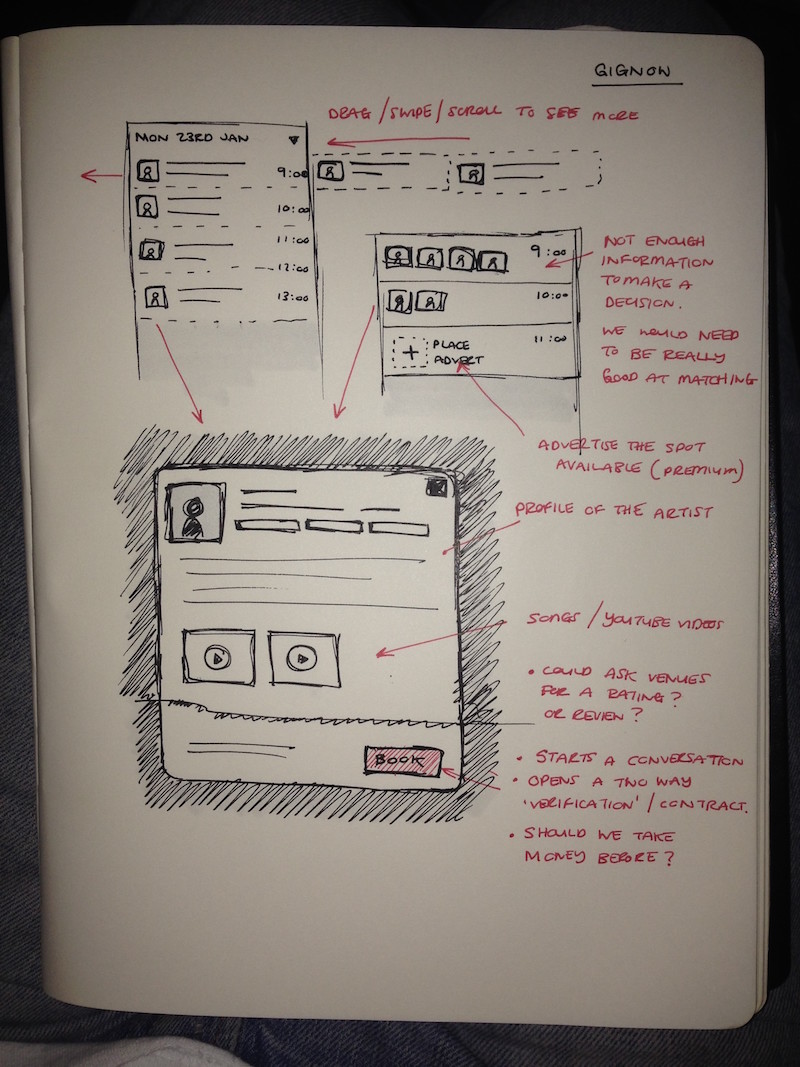 GIGNOW
DRAG/SWIPE/SCROLL TO SEE MORE
MON 23RD JAN
9:00
10:00
11:00
12:00
13:00
9:00
10:00
11:00
+ PLACE
ADVERT
NOT ENOUGH
INFORMATION
TO MAKE A
DECISION.
WE WOULD NEED
TO BE REALLY
GOOD AT MATCHING
ADVERTISE THE SPOT
AVAILABLE (PREMIUM)
PROFILE OF THE ARTIST
SONGS / YOUTUBE VIDEOS
• COULD ASK VENUES
FOR A RATING?
OR REVIEW?
BOOK
• STARTS A CONVERSATION
• OPENS A TWO WAY
'VERIFICATION' / CONTRACT.
• SHOULD WE TAKE
MONEY BEFORE?